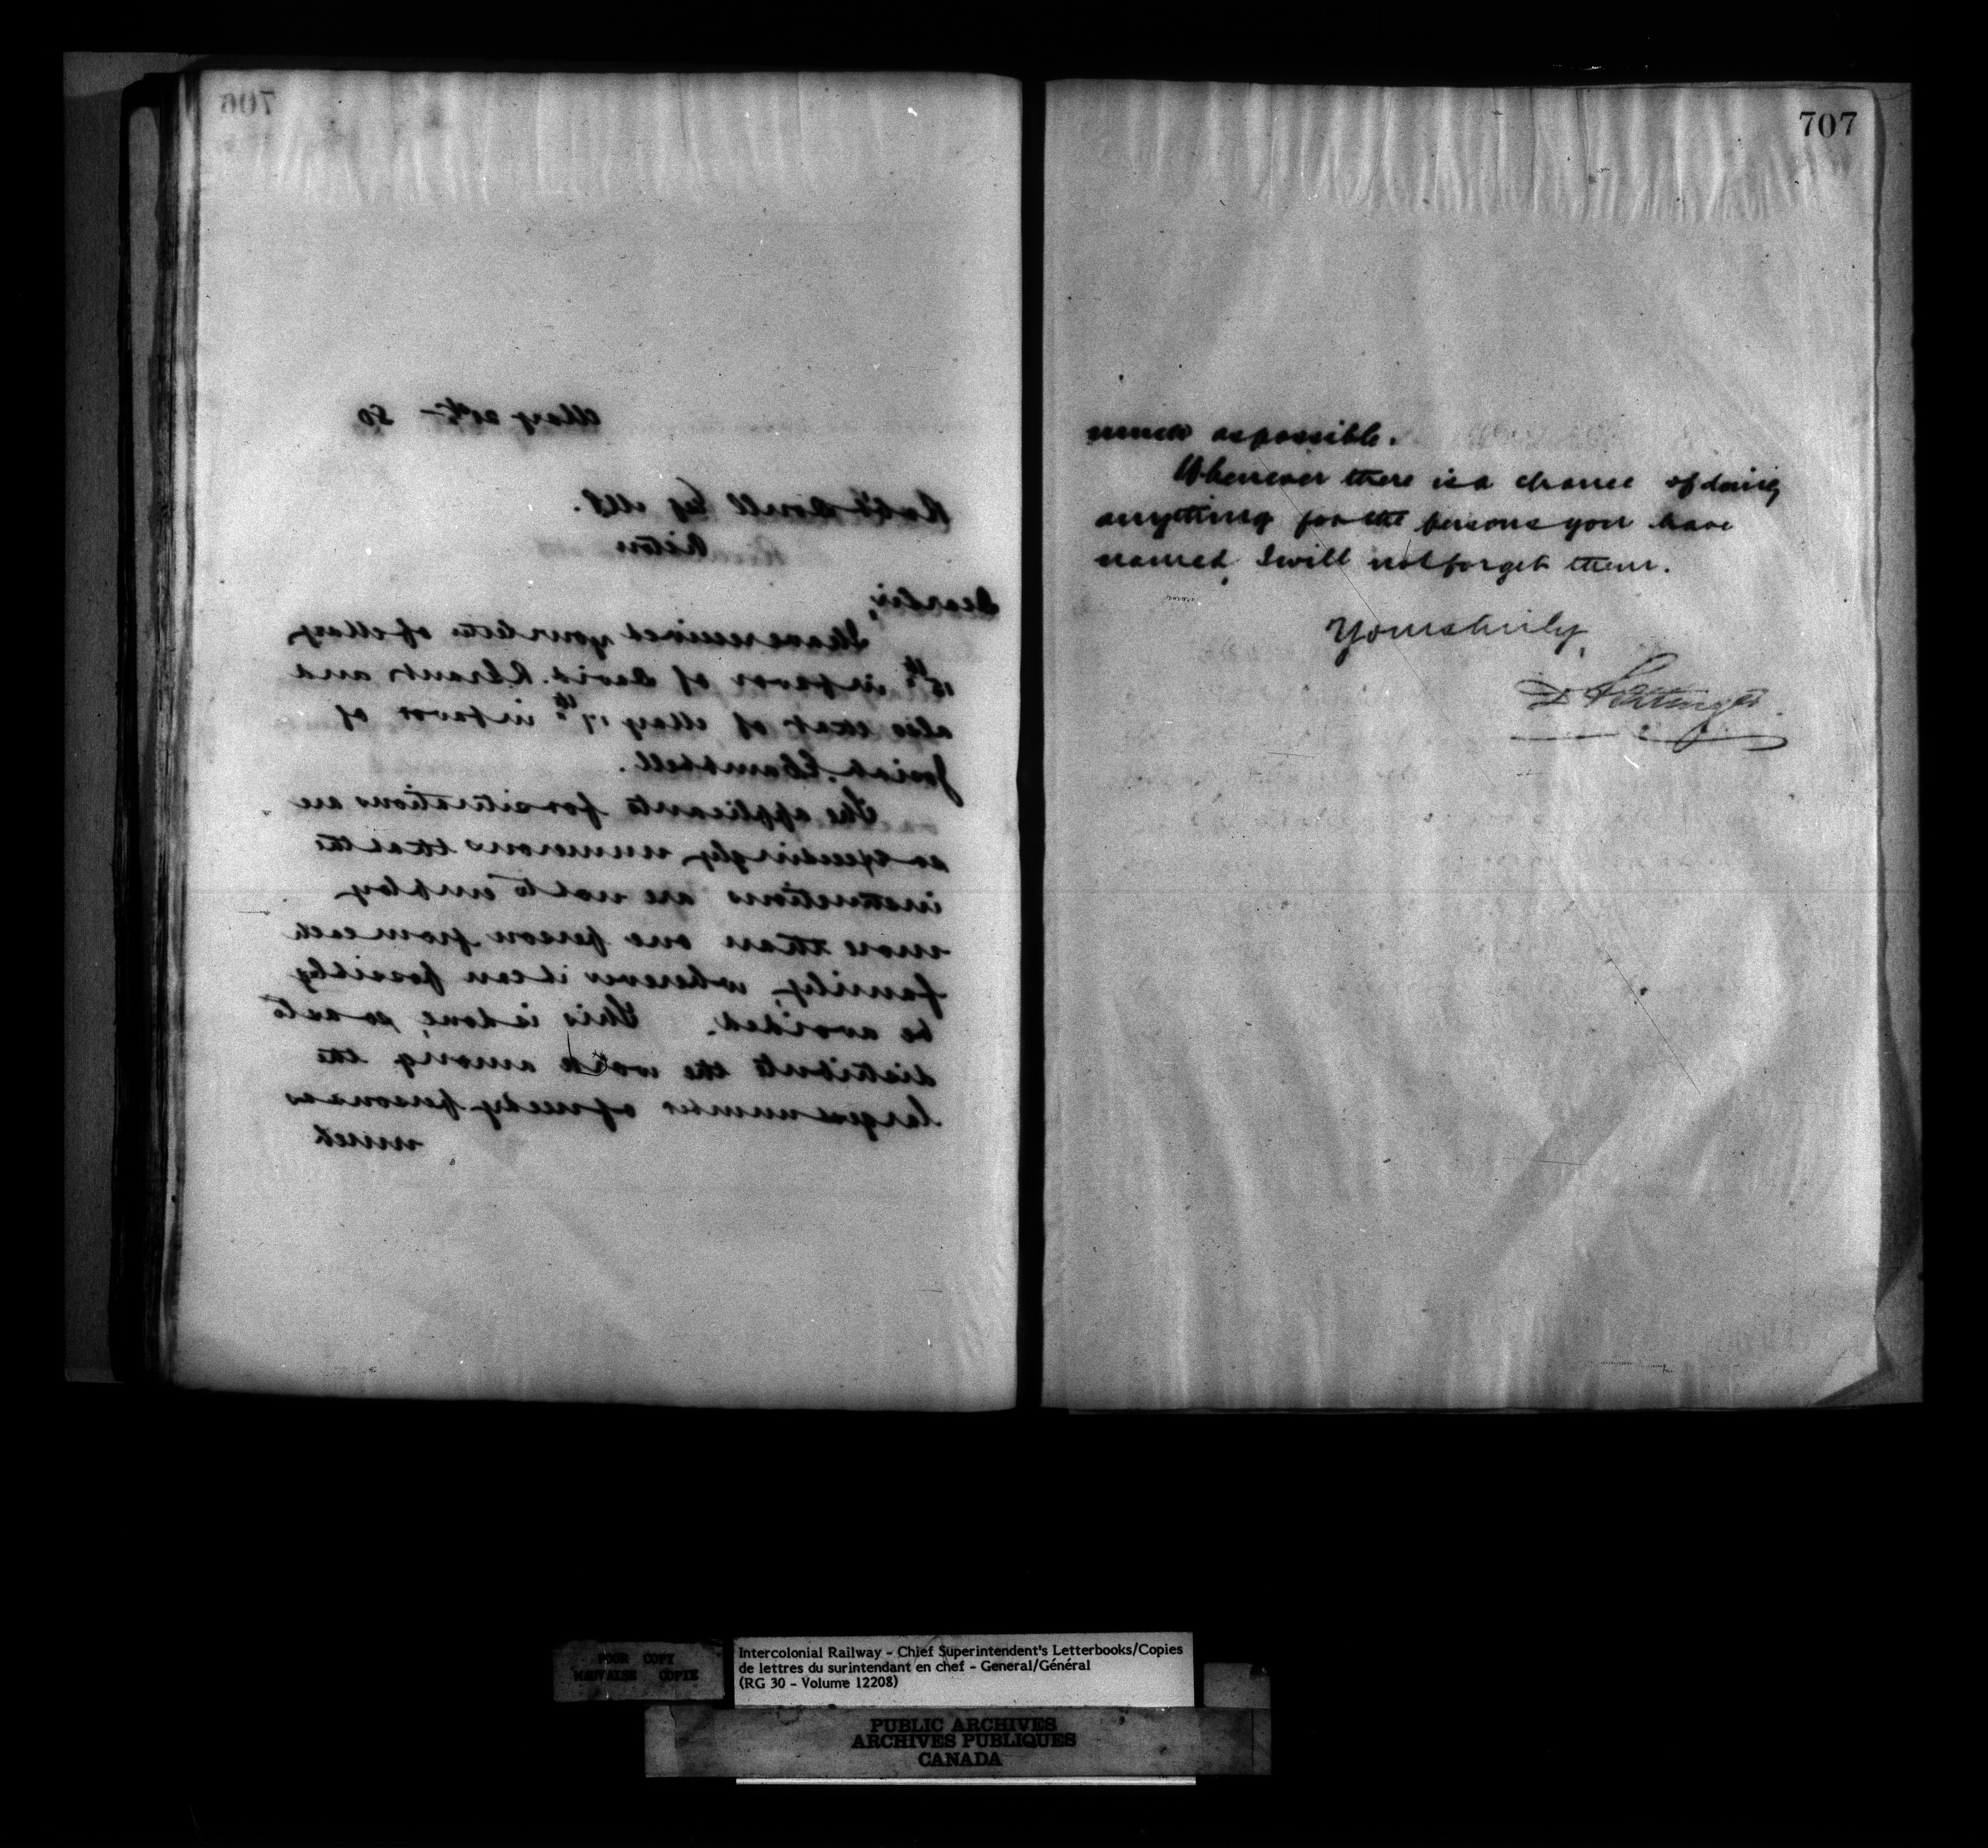 706
May 20th - 80
Robt Doull Esq MP.
Pictou
Dear Sir,
I have received your letter of May
15th in favor of David. R Grant and
also that of May 17th in favor of
Josiah. Campbell.
The applicants for situations are
so exceedingly numerous that the
instructions are not to employ
more than one person from each
family, wherever it can possibly
be avoided. This is done, so as to
distribute the work among the
largest number of needy persons as
much
707
much as possible.
Whenever there is a chance of doing
anything for the persons you have
named, I will not forget them.
Yours truly,
D Pottinger.
POOR COPY
MAUVAISE COPIE
Intercolonial Railway - Chief Superintendent's Letterbooks/Copies
de lettres du surintendant en chef - General/Général
(RG 30 - Volume 12208)
PUBLIC ARCHIVES
ARCHIVES PUBLIQUES
CANADA